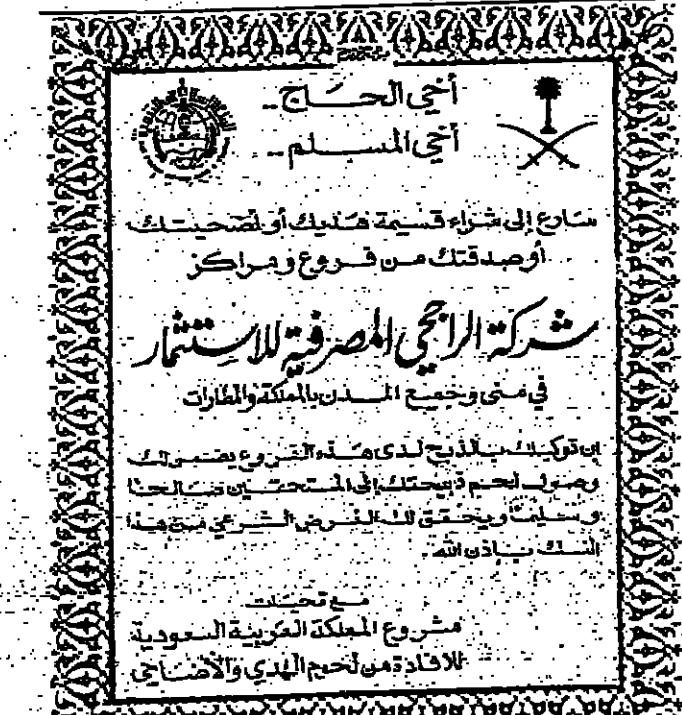 أخي الحـــاج ..
أخي المســـلم ..
سارع إلى شراء قسيمة هديك أو أضحيتك
أو صدقتك من فروع ومراكز
شركة الراجحي المصرفية للاستثمار
في منى وجميع المـــدن بالمملكة والمطارات
إن توكيلك بالذبح لدى هـذه الفـروع يضمن لك
وصول لحم ذبيحتك إلى المستحقين صالحا
وسليما ويحقق لك الغرض الشرعي من هذا
النسك بإذن الله .
مع تحيات
مشروع المملكة العربية السعودية
للافادة من لحوم الهدي والأضاحي